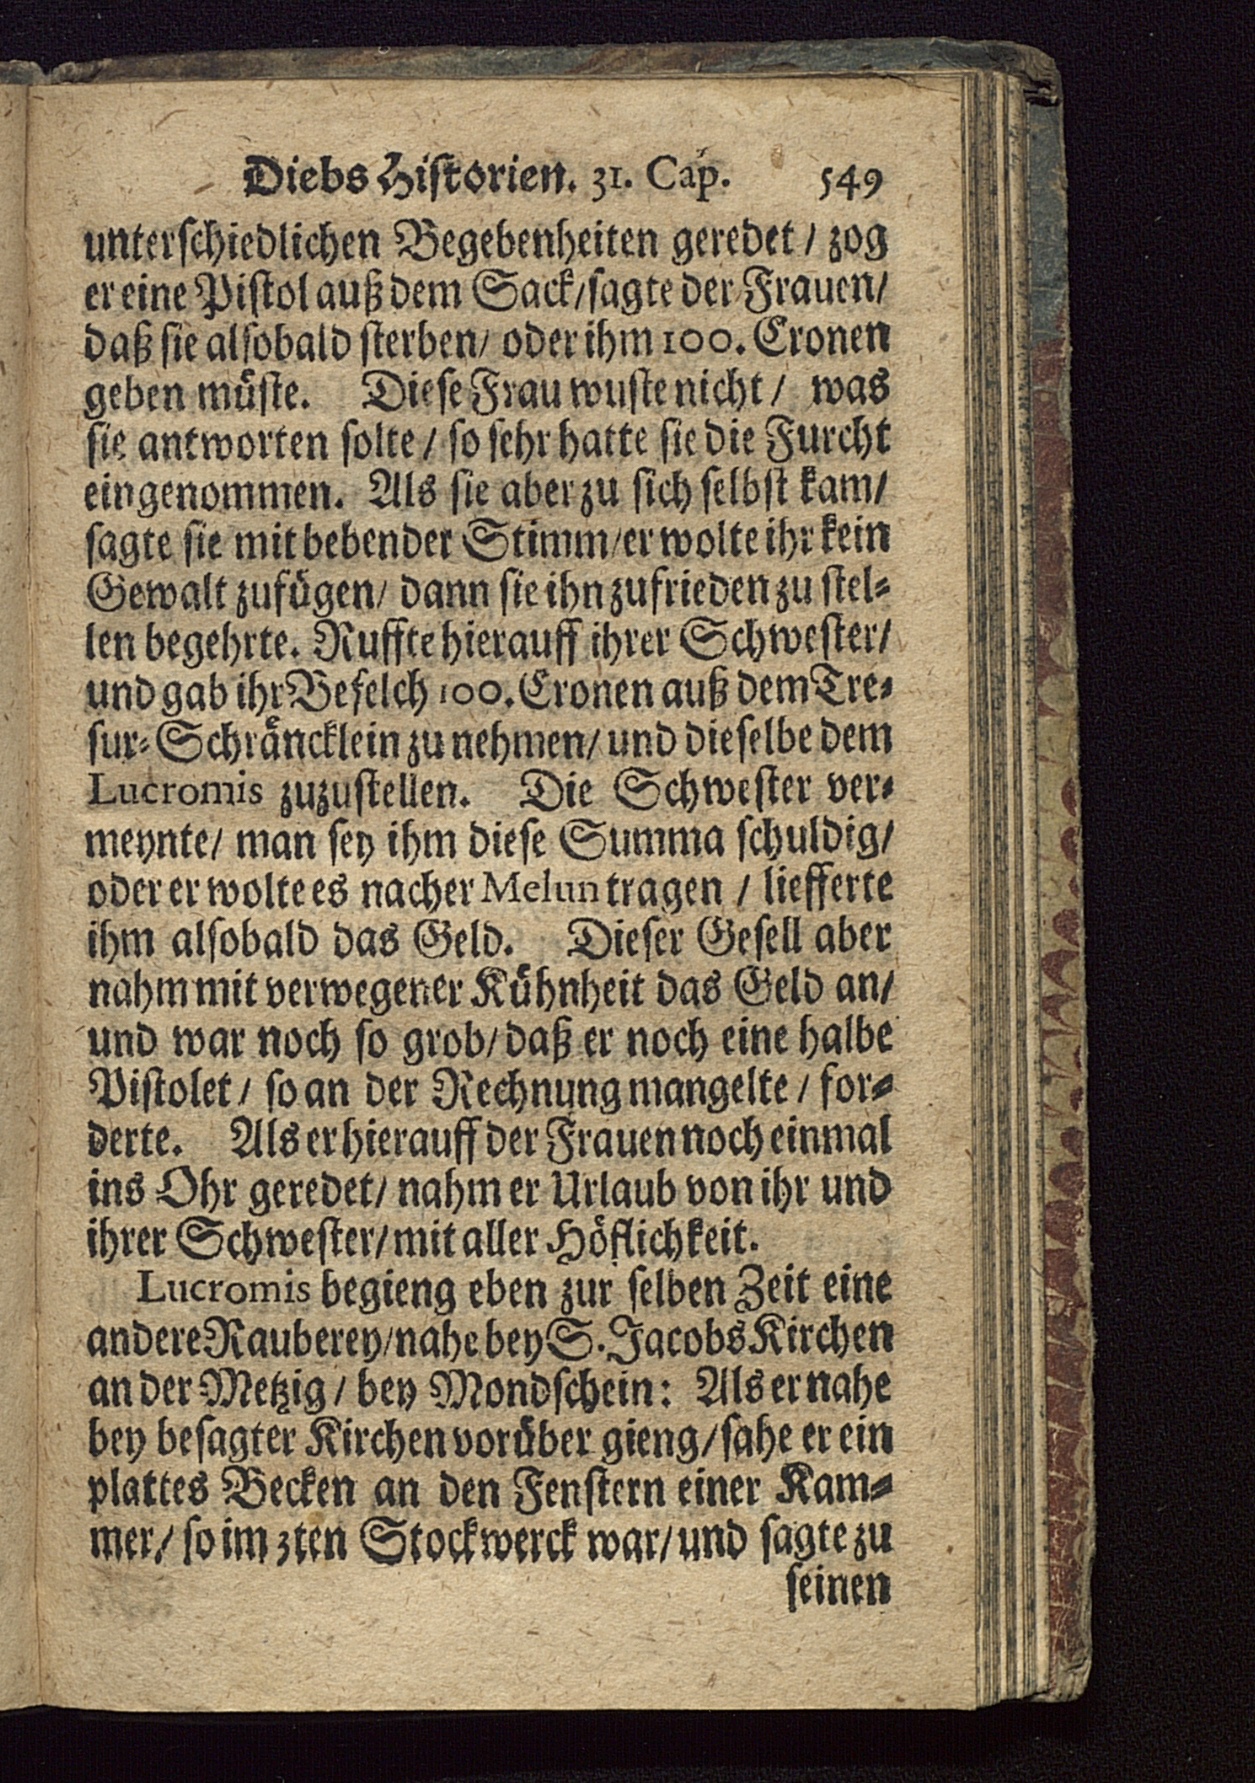 Diebs Historien. 31. Cap. 549
unterschiedlichen Begebenheiten geredet / zog
er eine Pistol auß dem Sack / sagte der Frauen /
daß sie alsobald sterben / oder ihm 100. Cronen
geben müste. Diese Frau wuste nicht / was
sie antworten solte / so sehr hatte sie die Furcht
eingenommen. Als sie aber zu sich selbst kam /
sagte sie mit bebender Stimm / er wolte ihr kein
Gewalt zufügen / dann sie ihn zufrieden zu stel-
len begehrte. Ruffte hierauff ihrer Schwester /
und gab ihr Befelch 100. Cronen auß dem Tre-
sur-Schräncklein zu nehmen / und dieselbe dem
Lucromis zuzustellen. Die Schwester ver-
meynte / man sey ihm diese Summa schuldig /
oder er wolte es nacher Melun tragen / liefferte
ihm alsobald das Geld. Dieser Gesell aber
nahm mit verwegener Kühnheit das Geld an /
und war noch so grob / daß er noch eine halbe
Pistolet / so an der Rechnung mangelte / for-
derte. Als er hierauff der Frauen noch einmal
ins Ohr geredet / nahm er Urlaub von ihr und
ihrer Schwester / mit aller Höflichkeit.
Lucromis begieng eben zur selben Zeit eine
andere Rauberey / nahe bey S. Jacobs Kirchen
an der Metzig / bey Mondschein: Als er nahe
bey besagter Kirchen vorüber gieng / sahe er ein
plattes Becken an den Fenstern einer Kam-
mer / so im 3ten Stockwerck war / und sagte zu
seinen